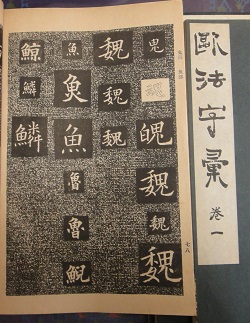 歐法字彙
卷一
鬼
魄
魏
魏
魏
魏
魏
魏
魚
魚
魚
魯
魯
鯨
鱗
鱗
七八